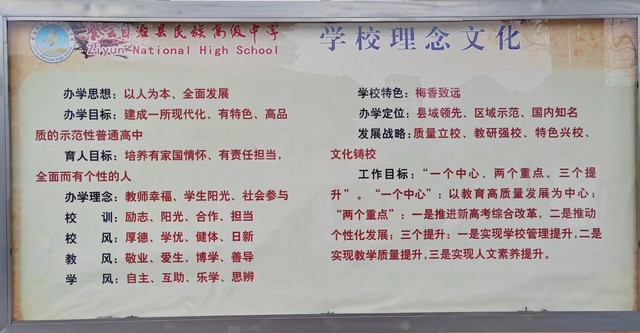 紫云自治县民族高级中学
Ziyun National High School
学校理念文化
办学思想：以人为本、全面发展
办学目标：建成一所现代化、有特色、高品
质的示范性普通高中
育人目标：培养有家国情怀、有责任担当，
全面而有个性的人
办学理念：教师幸福、学生阳光、社会参与
校 训：励志、阳光、合作、担当
校 风：厚德、学优、健体、日新
教 风：敬业、爱生、博学、善导
学 风：自主、互助、乐学、思辨
学校特色：梅香致远
办学定位：县域领先、区域示范、国内知名
发展战略：质量立校、教研强校、特色兴校、
文化铸校
工作目标：“一个中心、两个重点、三个提
升”。“一个中心”：以教育高质量发展为中心；
“两个重点”：一是推进新高考综合改革，二是推动
个性化发展；三个提升：一是实现学校管理提升,二是
实现教学质量提升,三是实现人文素养提升。